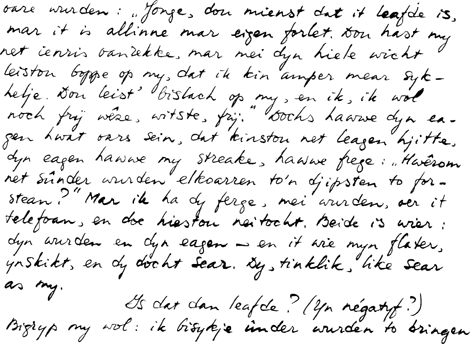 oare wurden: „Jonge, dou mienst dat it leafde is,
mar it is allinne mar eigen forlet. Dou hast my
net ienris oanrekke, mar mei dyn hiele wicht
leiston boppe op my, dat ik kin amper mear syk-
helje. Dou leist' bislach op my, en ik, ik wol
noch frij wêze, witste, frij." Dochs hawwe dyn ea-
gen hwat oars sein, dat kinston net leagen hjitte,
dyn eagen hawwe my streake, hawwe frege: „Hwêrom
net sûnder wurden elkoarren to'n djipsten to for-
stean?" Mar ik ha dy ferge, mei wurden, oer it
telefoan, en doe hieston neitocht. Beide is wier:
dyn wurden en dyn eagen — en it wie myn flater,
ynskikt, en dy docht sear. Dy, tinklik, like sear
as my.
Is dat dan leafde? (Yn négatyf?)
Bigryp my wol: ik bisykje ûnder wurden to bringen